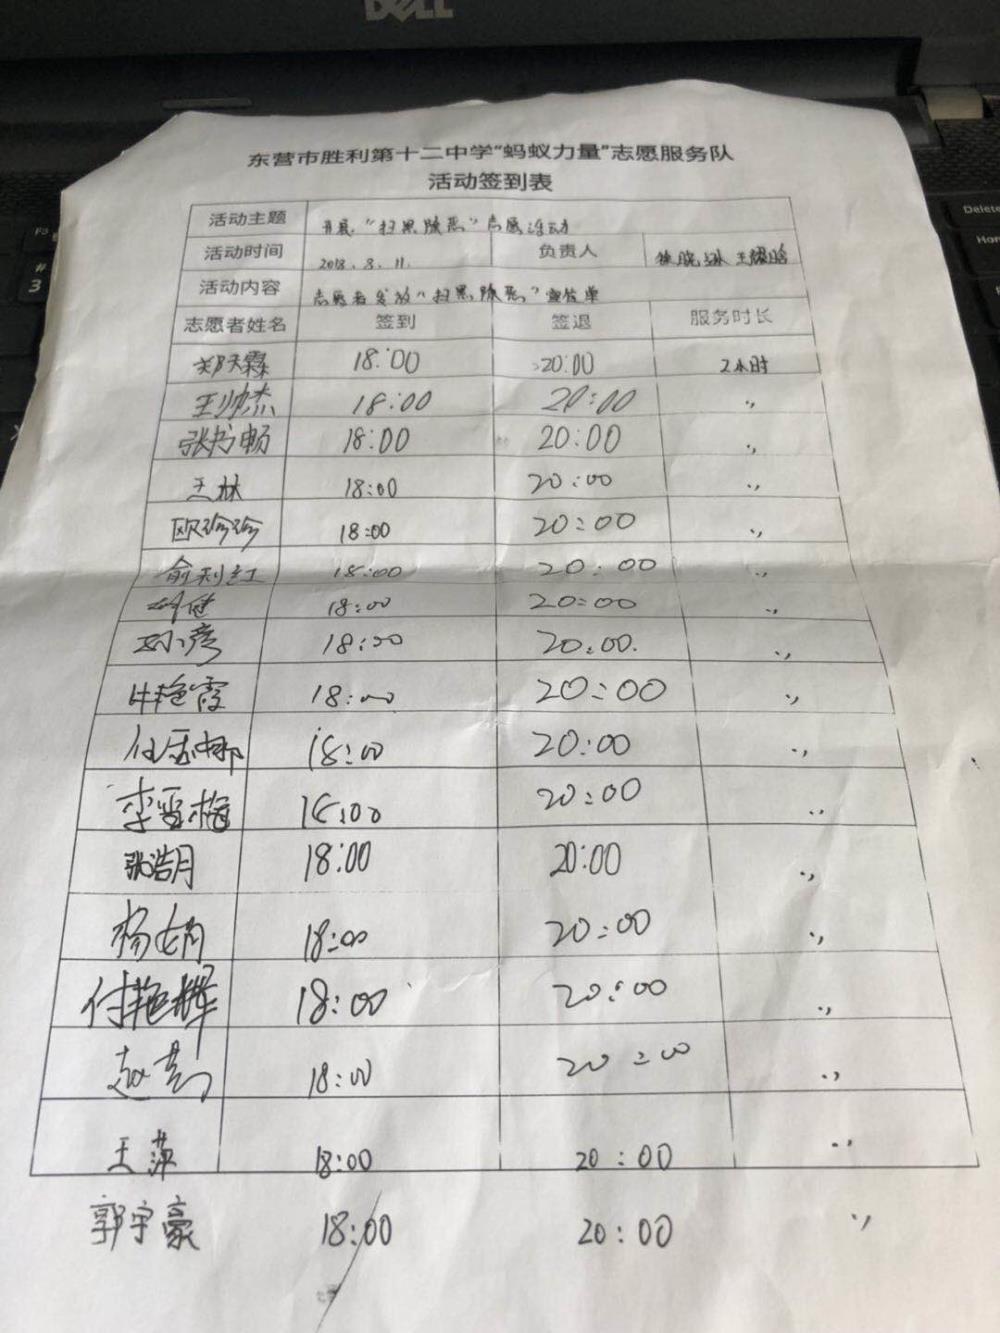 DELL
东营市胜利第十二中学“蚂蚁力量”志愿服务队
活动签到表
活动主题 开展“扫黑除恶”志愿活动
活动时间 2018.8.11. 负责人 徐晓琳 王
活动内容 志愿者发放“扫黑除恶”宣传单
志愿者姓名 签到 签退 服务时长
郑天霖 18:00 20:00 2小时
王帅杰 18:00 20:00 〃
张书畅 18:00 20:00 〃
王林 18:00 20:00 〃
欧珍珍 18:00 20:00 〃
俞利红 18:00 20:00 〃
健 18:00 20:00 〃
孙彦 18:00 20:00. 〃
牛艳霞 18:00 20:00 〃
18:00 20:00 〃
李雪梅 18:00 20:00 〃
张浩月 18:00 20:00 〃
杨娟 18:00 20:00 〃
付艳辉 18:00 20:00 〃
赵 18:00 20:00 〃
王萍 18:00 20:00 〃
郭宇豪 18:00 20:00 〃
Delete
F3
#
3